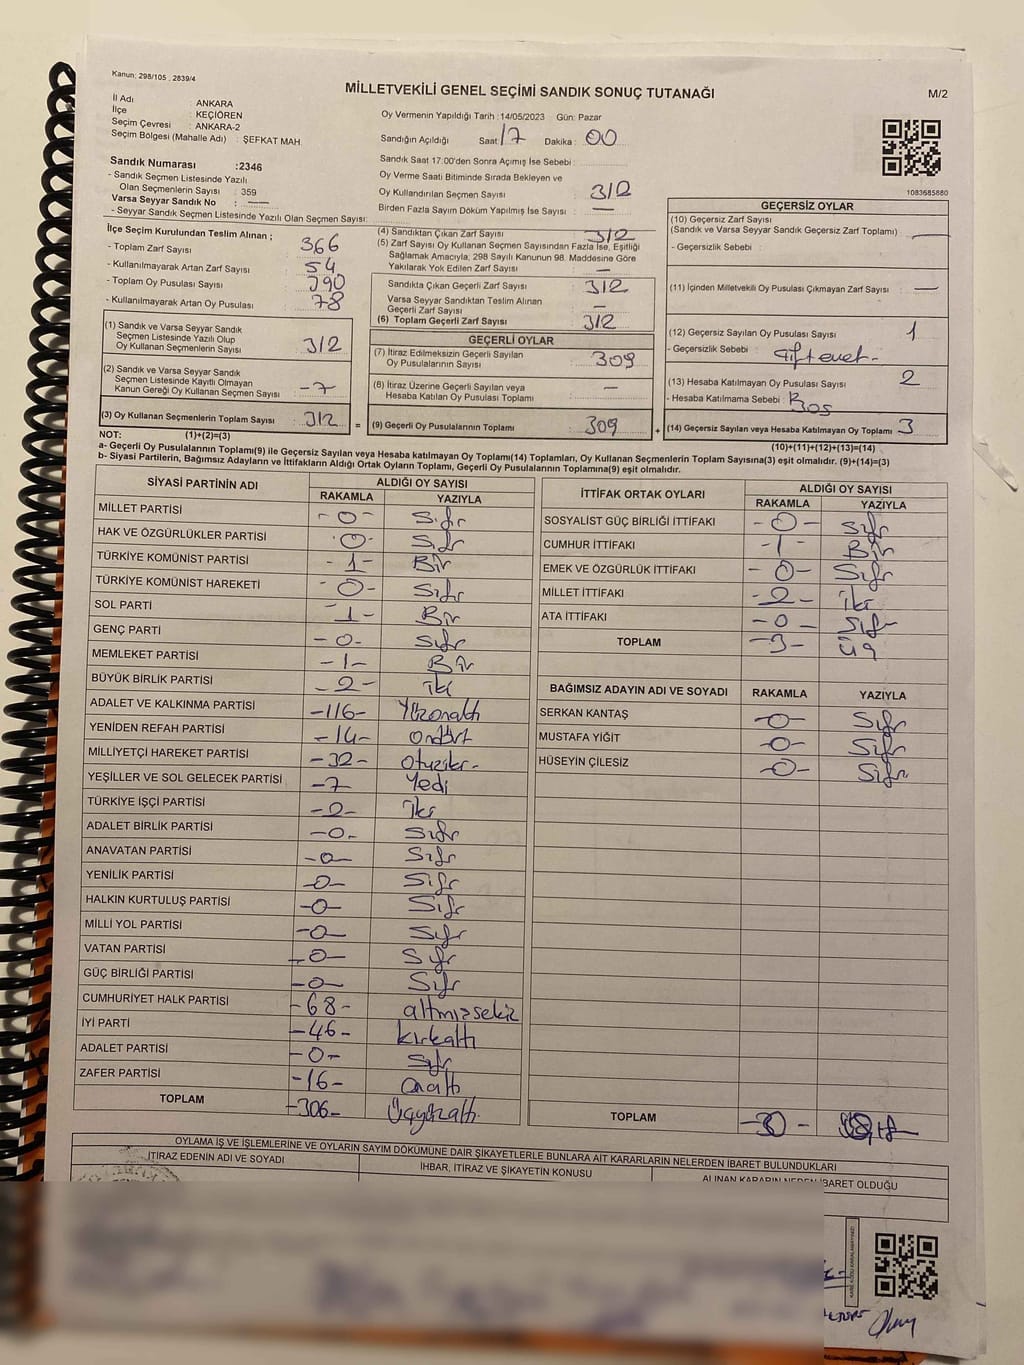 Kanun: 298/105 , 2839/4
MİLLETVEKİLİ GENEL SEÇİMİ SANDIK SONUÇ TUTANAĞI
M/2
İl Adı : ANKARA
İlçe : KEÇİÖREN
Seçim Çevresi : ANKARA-2
Seçim Bölgesi (Mahalle Adı) : ŞEFKAT MAH.
Sandık Numarası :2346
- Sandık Seçmen Listesinde Yazılı
Olan Seçmenlerin Sayısı : 359
Varsa Seyyar Sandık No : —
- Seyyar Sandık Seçmen Listesinde Yazılı Olan Seçmen Sayısı:
Oy Vermenin Yapıldığı Tarih :14/05/2023 Gün: Pazar
Sandığın Açıldığı Saat 17 Dakika : 00
Sandık Saat 17:00'den Sonra Açımış İse Sebebi :
Oy Verme Saati Bitiminde Sırada Bekleyen ve
Oy Kullandırılan Seçmen Sayısı 312
Birden Fazla Sayım Döküm Yapılmış İse Sayısı : —
1083685880
İlçe Seçim Kurulundan Teslim Alınan ;
- Toplam Zarf Sayısı : 366
- Kullanılmayarak Artan Zarf Sayısı : 54
- Toplam Oy Pusulası Sayısı : 390
- Kullanılmayarak Artan Oy Pusulası : 78
(1) Sandık ve Varsa Seyyar Sandık
Seçmen Listesinde Yazılı Olup
Oy Kullanan Seçmenlerin Sayısı : 312
(2) Sandık ve Varsa Seyyar Sandık
Seçmen Listesinde Kayıtlı Olmayan
Kanun Gereği Oy Kullanan Seçmen Sayısı :
(3) Oy Kullanan Seçmenlerin Toplam Sayısı : 312
(4) Sandıktan Çıkan Zarf Sayısı : 312
(5) Zarf Sayısı Oy Kullanan Seçmen Sayısından Fazla İse, Eşitliği
Sağlamak Amacıyla, 298 Sayılı Kanunun 98. Maddesine Göre
Yakılarak Yok Edilen Zarf Sayısı : —
Sandıkta Çıkan Geçerli Zarf Sayısı : 312
Varsa Seyyar Sandıktan Teslim Alınan
Geçerli Zarf Sayısı : —
(6) Toplam Geçerli Zarf Sayısı : 312
GEÇERLİ OYLAR
(7) İtiraz Edilmeksizin Geçerli Sayılan
Oy Pusulalarının Sayısı : 309
(8) İtiraz Üzerine Geçerli Sayılan veya
Hesaba Katılan Oy Pusulası Toplamı : —
= (9) Geçerli Oy Pusulalarının Toplamı : 309
GEÇERSİZ OYLAR
(10) Geçersiz Zarf Sayısı
(Sandık ve Varsa Seyyar Sandık Geçersiz Zarf Toplamı) : —
- Geçersizlik Sebebi :
(11) İçinden Milletvekili Oy Pusulası Çıkmayan Zarf Sayısı : —
(12) Geçersiz Sayılan Oy Pusulası Sayısı : 1
- Geçersizlik Sebebi : Çift evet-
(13) Hesaba Katılmayan Oy Pusulası Sayısı : 2
- Hesaba Katılmama Sebebi : Boş
+ (14) Geçersiz Sayılan veya Hesaba Katılmayan Oy Toplamı : 3
NOT: (1)+(2)=(3)
(10)+(11)+(12)+(13)=(14)
a- Geçerli Oy Pusulalarının Toplamı(9) ile Geçersiz Sayılan veya Hesaba katılmayan Oy Toplamı(14) Toplamları, Oy Kullanan Seçmenlerin Toplam Sayısına(3) eşit olmalıdır. (9)+(14)=(3)
b- Siyasi Partilerin, Bağımsız Adayların ve İttifakların Aldığı Ortak Oyların Toplamı, Geçerli Oy Pusulalarının Toplamına(9) eşit olmalıdır.
SİYASİ PARTİNİN ADI ALDIĞI OY SAYISI
RAKAMLA YAZIYLA
MİLLET PARTİSİ -0- Sıfır
HAK VE ÖZGÜRLÜKLER PARTİSİ -0- Sıfır
TÜRKİYE KOMÜNİST PARTİSİ -1- Bir
TÜRKİYE KOMÜNİST HAREKETİ -0- Sıfır
SOL PARTİ -1- Bir
GENÇ PARTİ -0- Sıfır
MEMLEKET PARTİSİ -1- Bir
BÜYÜK BİRLİK PARTİSİ -2- iki
ADALET VE KALKINMA PARTİSİ -116- Yüzonaltı
YENİDEN REFAH PARTİSİ -14- Ondört
MİLLİYETÇİ HAREKET PARTİSİ -32- Otuziki-
YEŞİLLER VE SOL GELECEK PARTİSİ -7- Yedi
TÜRKİYE İŞÇİ PARTİSİ -2- İki
ADALET BİRLİK PARTİSİ -0- Sıfır
ANAVATAN PARTİSİ -0- Sıfır
YENİLİK PARTİSİ -0- Sıfır
HALKIN KURTULUŞ PARTİSİ -0- Sıfır
MİLLİ YOL PARTİSİ -0- Sıfır
VATAN PARTİSİ -0- Sıfır
GÜÇ BİRLİĞİ PARTİSİ -0- Sıfır
CUMHURİYET HALK PARTİSİ -68- altmışsekiz
İYİ PARTİ -46- kırkaltı
ADALET PARTİSİ -0- Sıfır
ZAFER PARTİSİ -16- Onaltı
TOPLAM -306- Üçyüzaltı
İTTİFAK ORTAK OYLARI ALDIĞI OY SAYISI
RAKAMLA YAZIYLA
SOSYALİST GÜÇ BİRLİĞİ İTTİFAKI -0- Sıfır
CUMHUR İTTİFAKI -1- Bir
EMEK VE ÖZGÜRLÜK İTTİFAKI -0- Sıfır
MİLLET İTTİFAKI -2- iki
ATA İTTİFAKI -0- Sıfır
TOPLAM -3- Üç
BAĞIMSIZ ADAYIN ADI VE SOYADI RAKAMLA YAZIYLA
SERKAN KANTAŞ -0- Sıfır
MUSTAFA YİĞİT -0- Sıfır
HÜSEYİN ÇİLESİZ -0- Sıfır
TOPLAM
OYLAMA İŞ VE İŞLEMLERİNE VE OYLARIN SAYIM DÖKÜMÜNE DAİR ŞİKAYETLERLE BUNLARA AİT KARARLARIN NELERDEN İBARET BULUNDUKLARI
İTİRAZ EDENİN ADI VE SOYADI İHBAR, İTİRAZ VE ŞİKAYETİN KONUSU ALINAN KARARIN NEDEN İBARET OLDUĞU